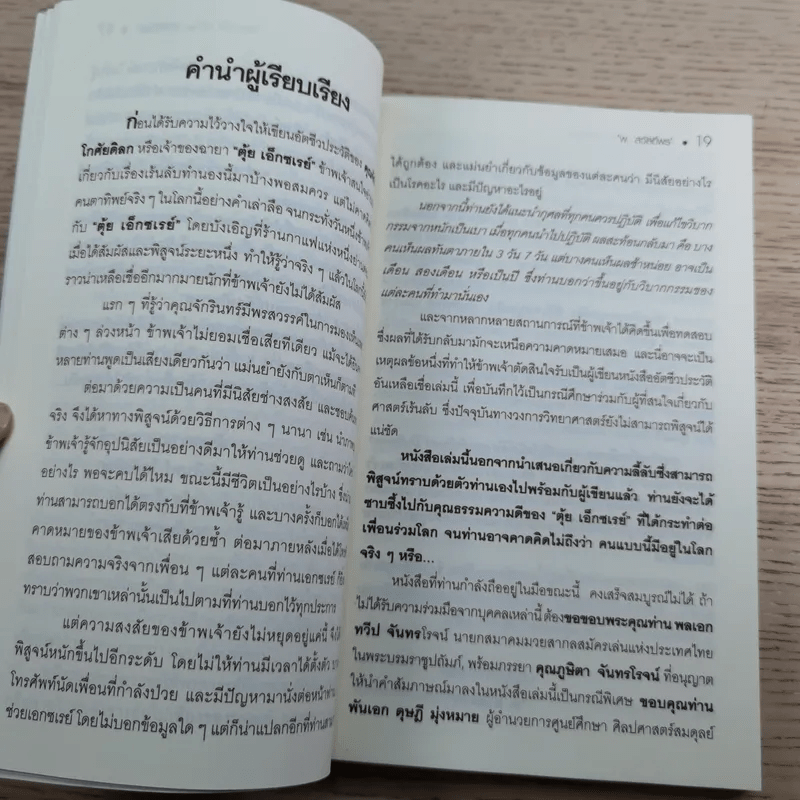 คำนำผู้เรียบเรียง
ก่อนได้รับความไว้วางใจให้เขียนอัตชีวประวัติของ
โกศัยดิลก หรือเจ้าของฉายา "ตุ้ย เอ็กซเรย์" ข้าพเจ้าสนใจ
เกี่ยวกับเรื่องเร้นลับทำนองนี้มาบ้างพอสมควร แต่ไม่
คนตาทิพย์จริง ๆ ในโลกนี้อย่างคำเล่าลือ จนกระทั่งวันหนึ่ง
กับ "ตุ้ย เอ็กซเรย์" โดยบังเอิญที่ร้านกาแฟแห่งหนึ่ง
เมื่อได้สัมผัสและพิสูจน์ระยะหนึ่ง ทำให้รู้ว่าจริง ๆ แล้วในโลก
ราวน่าเหลือเชื่ออีกมากมายนักที่ข้าพเจ้ายังไม่ได้สัมผัส
แรก ๆ ที่รู้ว่าคุณจักรินทร์มีพรสวรรค์ในการมอง
ต่าง ๆ ล่วงหน้า ข้าพเจ้าไม่ยอมเชื่อเสียทีเดียว แม้จะได้
หลายท่านพูดเป็นเสียงเดียวกันว่า แม่นยำยังกับตาเห็นก็ตาม
ต่อมาด้วยความเป็นคนที่มีนิสัยช่างสงสัย และชอบ
จริง จึงได้หาทางพิสูจน์ด้วยวิธีการต่าง ๆ นานา เช่น
ข้าพเจ้ารู้จักอุปนิสัยเป็นอย่างดีมาให้ท่านช่วยดู และถามว่า
อย่างไร พอจะคบได้ไหม ขณะนี้มีชีวิตเป็นอย่างไรบ้าง
ท่านสามารถบอกได้ตรงกับที่ข้าพเจ้ารู้ และบางครั้งก็บอกได้
คาดหมายของข้าพเจ้าเสียด้วยซ้ำ ต่อมาภายหลังเมื่อได้
สอบถามความจริงจากเพื่อน ๆ แต่ละคนที่ท่านเอกซเรย์
ทราบว่าพวกเขาเหล่านั้นเป็นไปตามที่ท่านบอกไว้ทุกประการ
แต่ความสงสัยของข้าพเจ้ายังไม่หยุดอยู่แค่นี้
พิสูจน์หนักขึ้นไปอีกระดับ โดยไม่ให้ท่านมีเวลาได้ตั้งตัว
โทรศัพท์นัดเพื่อนที่กำลังป่วย และมีปัญหามานั่งต่อหน้า
ช่วยเอกซเรย์ โดยไม่บอกข้อมูลใด ๆ แต่ก็น่าแปลกอีกที่ท่าน
19
ได้ถูกต้อง และแม่นยำเกี่ยวกับข้อมูลของแต่ละคนว่า มีนิสัยอย่างไร
เป็นโรคอะไร และมีปัญหาอะไรอยู่
นอกจากนี้ท่านยังได้แนะนำกุศลที่ทุกคนควรปฏิบัติ เพื่อแก้ไขวิบาก
กรรมจากหนักเป็นเบา เมื่อทุกคนนำไปปฏิบัติ ผลสะท้อนกลับมา คือ บาง
คนเห็นผลทันตาภายใน 3 วัน 7 วัน แต่บางคนเห็นผลช้าหน่อย อาจเป็น
เดือน สองเดือน หรือเป็นปี ซึ่งท่านบอกว่าขึ้นอยู่กับวิบากกรรมของ
แต่ละคนที่ทำมานั่นเอง
และจากหลากหลายสถานการณ์ที่ข้าพเจ้าได้คิดขึ้นเพื่อทดสอบ
ซึ่งผลที่ได้รับกลับมามักจะเหนือความคาดหมายเสมอ และนี่อาจจะเป็น
เหตุผลข้อหนึ่งที่ทำให้ข้าพเจ้าตัดสินใจรับเป็นผู้เขียนหนังสืออัตชีวประวัติ
อันเหลือเชื่อเล่มนี้ เพื่อบันทึกไว้เป็นกรณีศึกษาร่วมกับผู้ที่สนใจเกี่ยวกับ
ศาสตร์เร้นลับ ซึ่งปัจจุบันทางวงการวิทยาศาสตร์ยังไม่สามารถพิสูจน์ได้
แน่ชัด
หนังสือเล่มนี้นอกจากนำเสนอเกี่ยวกับความลี้ลับซึ่งสามารถ
พิสูจน์ทราบด้วยตัวท่านเองไปพร้อมกับผู้เขียนแล้ว ท่านยังจะได้
ซาบซึ้งไปกับคุณธรรมความดีของ "ตุ้ย เอ็กซเรย์" ที่ได้กระทำต่อ
เพื่อนร่วมโลก จนท่านอาจคาดคิดไม่ถึงว่า คนแบบนี้มีอยู่ในโลก
จริง ๆ หรือ...
หนังสือที่ท่านกำลังถืออยู่ในมือขณะนี้ คงเสร็จสมบูรณ์ไม่ได้ ถ้า
ไม่ได้รับความร่วมมือจากบุคคลเหล่านี้ ต้องขอขอบพระคุณท่าน พลเอก
ทวีป จันทรโรจน์ นายกสมาคมมวยสากลสมัครเล่นแห่งประเทศไทย
ในพระบรมราชูปถัมภ์, พร้อมภรรยา คุณภูษิตา จันทรโรจน์ ที่อนุญาต
ให้นำคำสัมภาษณ์มาลงในหนังสือเล่มนี้เป็นกรณีพิเศษ ขอบคุณท่าน
พันเอก ดุษฎี มุ่งหมาย ผู้อำนวยการศูนย์ศึกษา ศิลปศาสตร์สมดุลย์